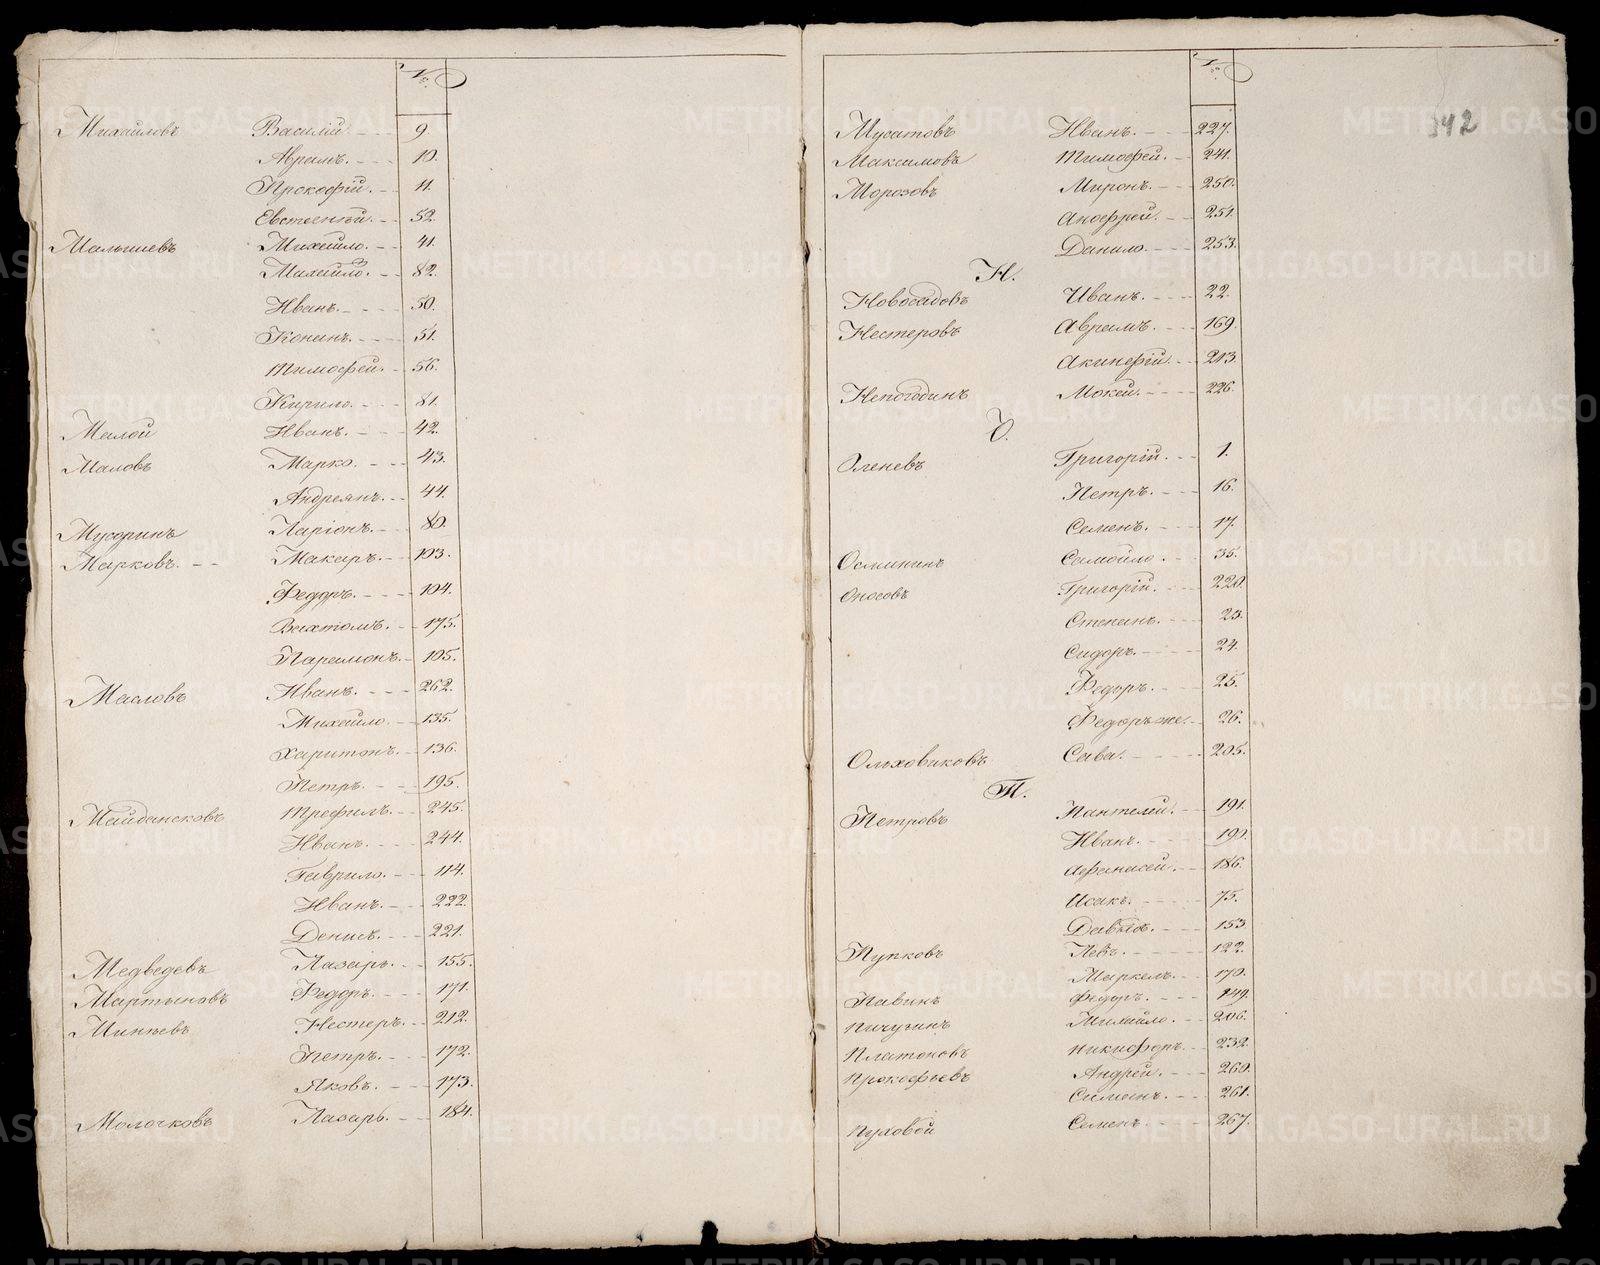 №
Михайловъ Василій. 9.
Аврамъ. 10.
Прокофій. 11.
Евстегнѣй. 52.
Малышевъ Михайло. 41.
Михайло. 82.
Иванъ. 50.
Кононъ. 51.
Тимофей. 56.
Кирило. 81.
Малой Иванъ. 42.
Маловъ Марко. 43.
Андреянъ. 44.
Мусоринъ Ларіонъ. 80.
Марковъ. Макаръ. 103.
Федоръ. 104.
175.
Парамонъ. 105.
Масловъ Иванъ. 262.
Михайло. 135.
Харитонъ. 136.
Петръ. 195.
Майдансковъ Трефилъ. 245.
Иванъ. 244.
Гаврило. 114.
Иванъ. 222.
Денисъ. 221.
Медведевъ Лазарь. 155.
Мартыновъ Федоръ. 171.
Минѣевъ Нестеръ. 212.
Петръ. 172.
Яковъ. 173.
Молочковъ Лазарь. 184.
№
342
Мусатовъ Иванъ. 227.
Максимовъ Тимофей. 241.
Морозовъ Миронъ. 250.
Анофрей. 251.
Данило. 253.
Н.
Новосадовъ Иванъ. 22.
Нестеровъ Аврамъ. 169.
Акинфій. 213
Непогодинъ Мокей. 226.
О.
Оленевъ Григорій. 1.
Петръ. 16.
Семенъ. 17.
Осминкинъ Самойло. 35.
Оносовъ Григорій. 220.
Степанъ. 23.
Сидоръ. 24.
Федоръ. 25.
Федоръ же. 26.
Ольховиковъ Сава. 205.
П.
Петровъ Пантелѣй. 191.
Иванъ. 192.
Афанасей. 186.
Исакъ. 75.
Давыдъ. 153
Пупковъ Левъ. 122.
Маркелъ. 170.
Павинъ Федоръ. 149.
Пичугинъ Михайло. 206.
Платоновъ Никифоръ. 232.
Прокофьевъ Андрей. 260.
261.
Пуховой Семенъ. 267.
METRIKI.GASO-URAL.RU